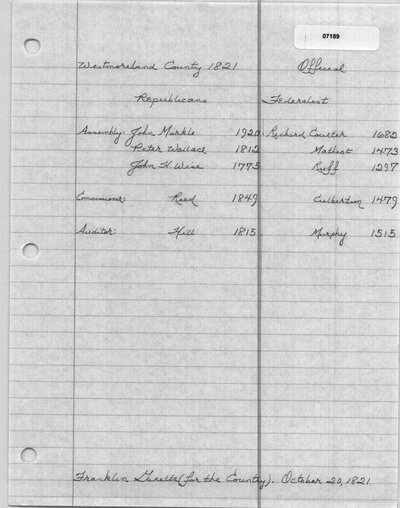 07189
Westmoreland County 1821 Official
Republicans Federalist
Assembly: John Markle 1920 Richard Coulter 1682
Peter Wallace 1812 Mathiot 1473
John H. Wise 1775 Ruff 1297
Commissioner: Reed 1849 Culbertson 1479
Auditor: Hill 1815 Murphy 1515
Franklin Gazette (for the Country). October 20, 1821